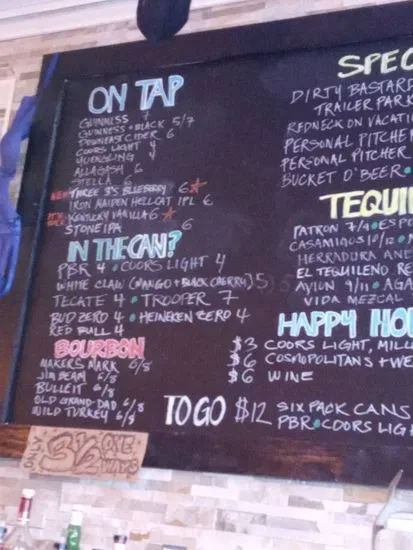 ON TAP
GUINNESS 7
GUINNESS + BLACK 5/7
DOWNEAST CIDER 6
COORS LIGHT 4
YUENGLING 4
ALLAGASH 6
STELLA 6
NEW THREE 3'S BLUEBERRY 6
IRON MAIDEN HELLCAT IPL 6
KENTUCKY VANILLA 6
STONE IPA 6
IN THE CAN?
PBR 4 • COORS LIGHT 4
WHITE CLAW (MANGO + BLACK CHERRY) 5
TECATE 4 • TROOPER 7
BUD ZERO 4 • HEINEKEN ZERO 4
RED BULL 4
BOURBON
MAKERS MARK 6/8
JIM BEAM 6/8
BULLEIT 6/8
OLD GRAND-DAD 6/8
WILD TURKEY 6/8
ONLY
3 1/2
SPEC
DIRTY BASTARD
TRAILER PAR
REDNECK ON VACATI
PERSONAL PITCHE
PERSONAL PITCHER
BUCKET O' BEER •
TEQUI
PATRON 7/9 • ESP
CASAMIGOS 10/12 •
HERRADURA ANE
EL TEQUILENO RE
AVION 9/11 • AGA
VIDA MEZCAL
HAPPY HO
$3 COORS LIGHT, MILL
$6 COSMOPOLITANS + WE
$6 WINE
TO GO $12 SIX PACK CANS
PBR • COORS LIGH